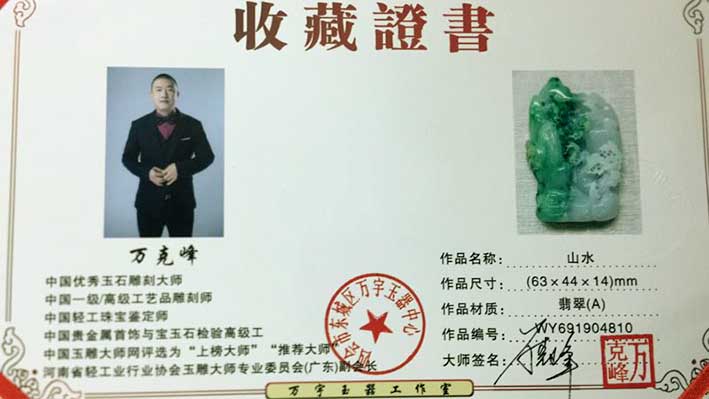 收藏證書
万克峰
中国优秀玉石雕刻大师
中国一级/高级工艺品雕刻师
中国轻工珠宝鉴定师
中国贵金属首饰与宝玉石检验高级工
中国玉雕大师网评选为“上榜大师”“推荐大师”
河南省轻工业行业协会玉雕大师专业委员会(广东)副会长
四会市东城区万字玉器中心
作品名称: 山水
作品尺寸: (63×44×14)mm
作品材质: 翡翠(A)
作品编号: WY691904810
大师签名:
万克峰
万字玉器工作室